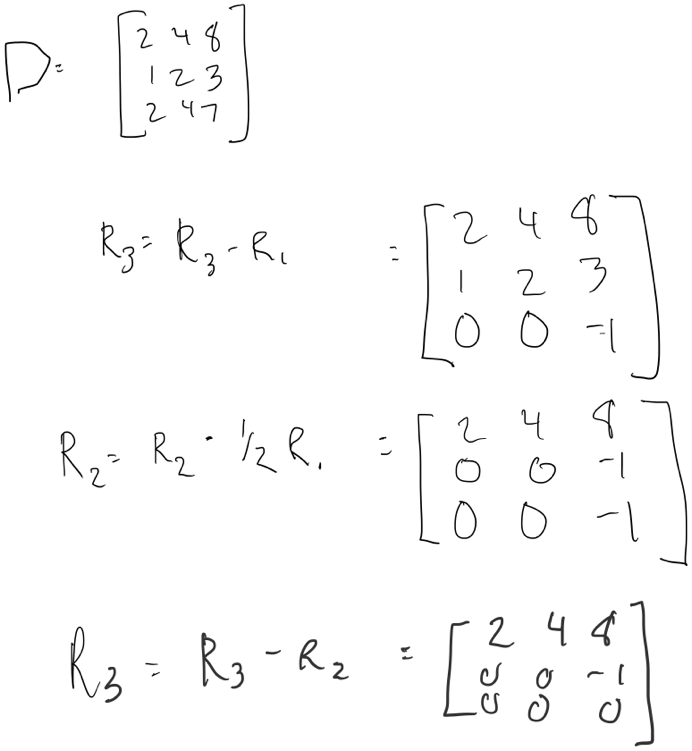 D = [2 4 8
1 2 3
2 4 7]
R₃ = R₃ - R₁ = [2 4 8
1 2 3
0 0 -1]
R₂ = R₂ · 1/2 R₁ = [2 4 8
0 0 -1
0 0 -1]
R₃ = R₃ - R₂ = [2 4 8
0 0 -1
0 0 0]